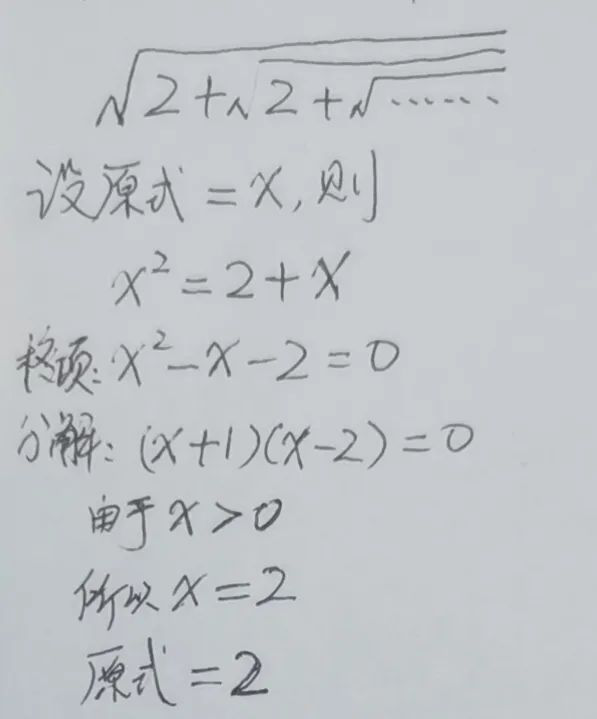 √2+√2+√……
设原式=x,则
x²=2+x
移项:x²-x-2=0
分解:(x+1)(x-2)=0
由于x>0
所以x=2
原式=2